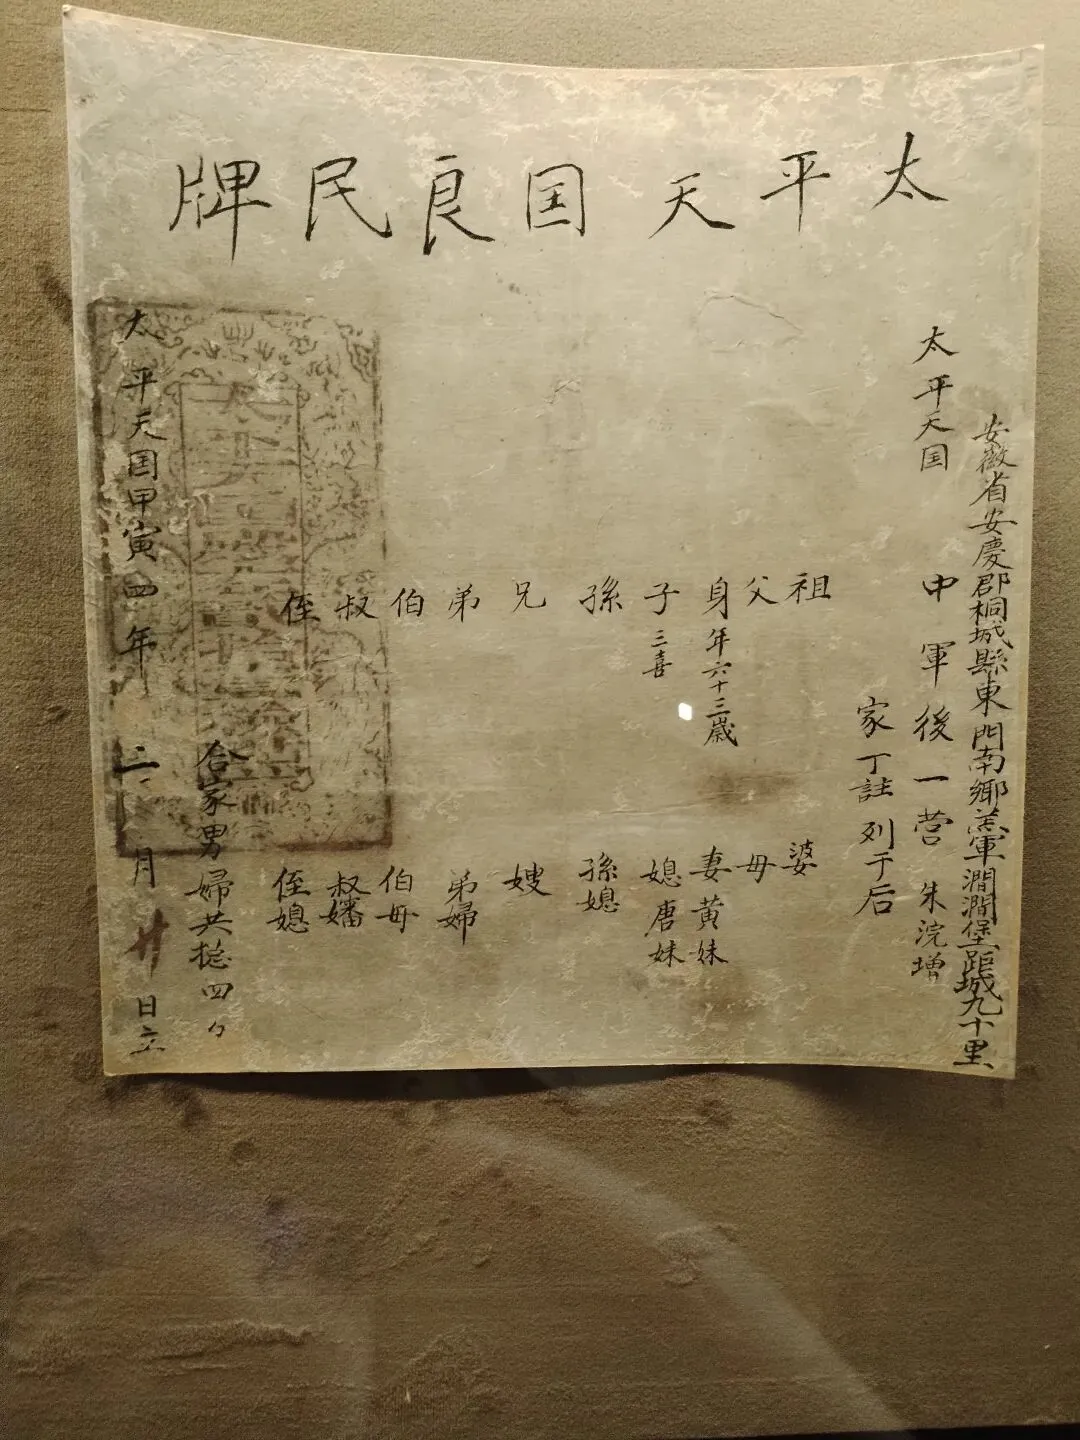 太平天囯良民牌
安徽省安慶郡桐城縣東門南鄉羔軍澗澗堡距城九十里
太平天囯 中軍後一营 朱浣增
家丁註列于后
祖 婆
父 母
身年六十三歲 妻黄妹
子三喜 媳唐妹
孫 孫媳
兄 嫂
弟 弟婦
伯 伯毋
叔 叔嬸
侄 侄媳
合家男婦共搃四
太平天囯甲寅四年二月廿日立